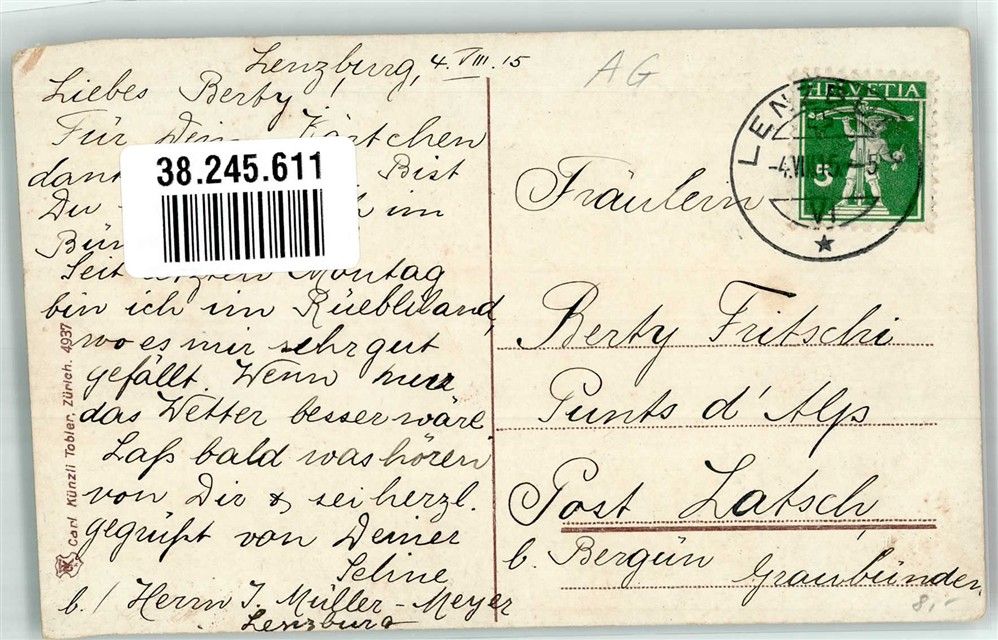 Lenzburg, 4. VIII. 15
Liebes Berty!
Für Dein Kärtchen
Bist
Du im
Seit letzten Montag
bin ich im Rüebliland,
wo es mir sehr gut
gefällt. Wenn nur
das Wetter besser wäre
Laß bald was hören
von Dir & sei herzl.
gegrüßt von Deiner
Seline
b./ Herrn J. Müller-Meyer
Lenzburg
38.245.611
Carl Künzli Tobler, Zürich. 4937
AG
HELVETIA
5
LENZB
-4.VIII.15.-5
VI
Fräulein
Berty Fritschi
Punts d'Alp
Post Latsch,
b. Bergün
Graubünden
8,-